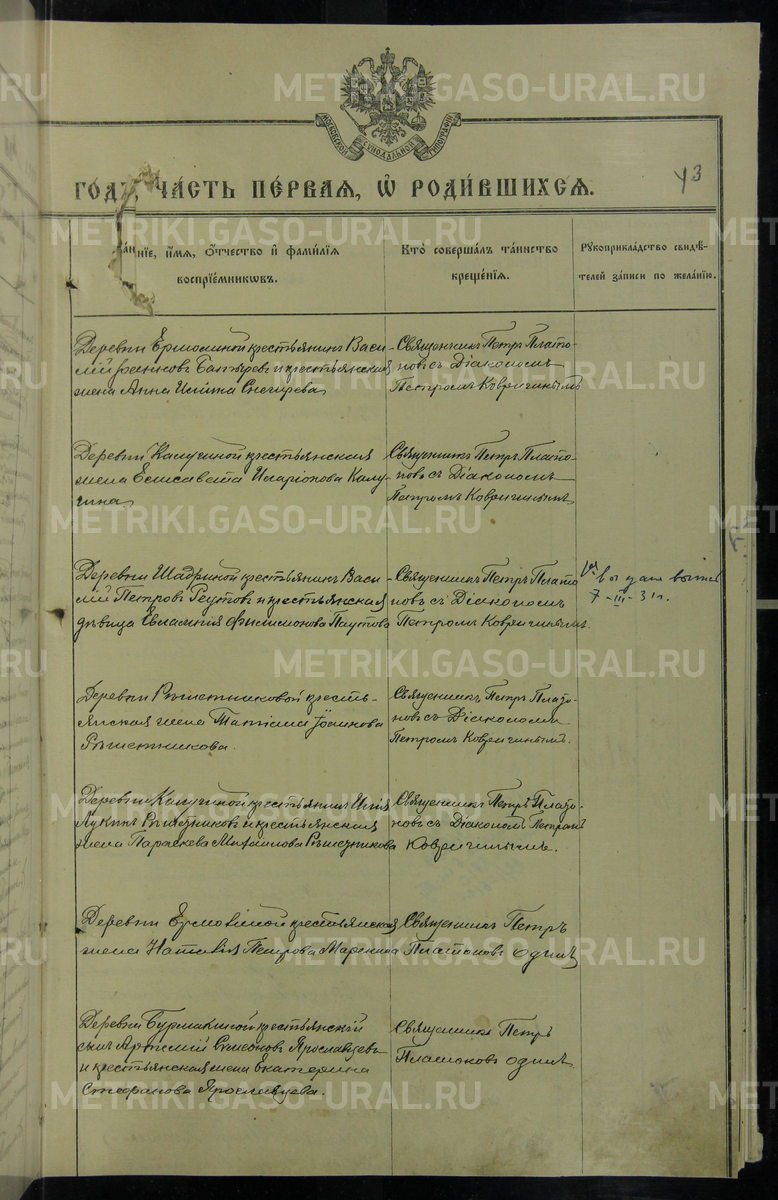 METRIKI.GASO-URAL.RU
МОСКОВСКОЙ СѴНОДАЛЬНОЙ ТИПОГРАФІИ
43
ГО́ДЪ, ЧА́СТЬ ПЕ́РВАЯ, Ѡ҆ РОДИ́ВШИХСЯ.
ніе, и҆́мя, Ѻ҆́тчество и҆ фами́лія
воспрїе́мникѡвъ.
Кто̀ соверша́лъ та́инство
креще́нїя.
Рꙋкоприкла́дство свидѣ́-
телей за́писи по жела́нїю.
Деревни Ермолиной крестьянинъ Васи-
лій Батыревъ и крестьянская
жена Анна Снегирева
Священникъ Петръ Плато-
новъ съ Діакономъ
Петромъ Ковригинымъ
Деревни Калугиной крестьянская
жена Елисавета Иларіонова Калу-
гина
Священникъ Петръ Плато-
новъ съ Діакономъ
Петромъ Ковригинымъ
Деревни Шадриной крестьянинъ Васи-
лій Петровъ Реутовъ и крестьянская
дѣвица Евлампія Филимонова Паутова
Священникъ Петръ Плато
новъ съ Діакономъ
Петромъ Ковригинымъ
7-III-31 г.
Деревни Рѣшетниковой кресть-
янская жена Іоаннова
Рѣшетникова.
Священникъ Петръ Плато-
новъ съ Діакономъ
Петромъ Ковригинымъ.
Деревни Калугиной крестьянинъ Илія
Лукинъ Рѣшетниковъ и крестьянская
жена Параскева Михаилова Рѣшетникова
Священникъ Петръ Плато-
новъ съ Діакономъ Петромъ
Ковригинымъ.
Деревни крестьянская
жена Наталія Петрова
Священникъ Петръ
Платоновъ одинъ
Деревни Бурмакиной крестьянскій
сынъ Артемій Симеоновъ Ярославцевъ
и крестьянская жена Екатерина
Стефанова Ярославцева.
Священникъ Петръ
Платоновъ одинъ